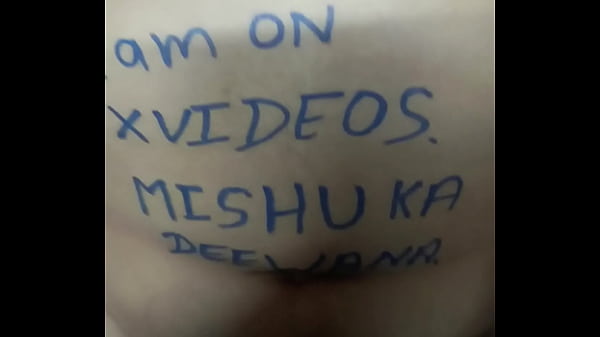 am ON
XVIDEOS.
MISHU KA
DEEWANA.